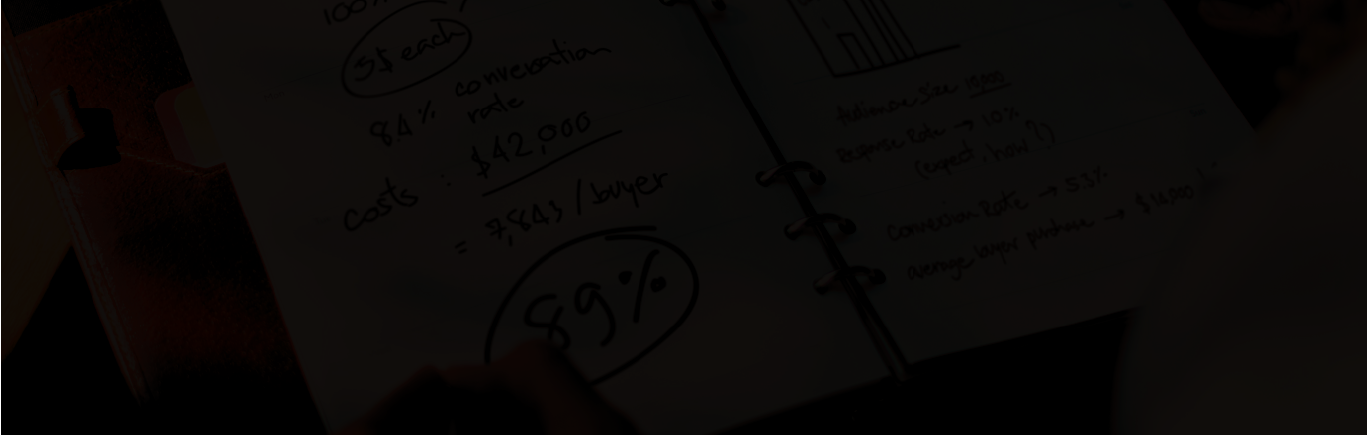 100%
5$ each
84% conversation
rate
costs : $42,000
= 7,843 / buyer
89%
Audience size 10,000
Response Rate → 10%
(expect, how?)
Conversion Rate → 5.3%
average buyer purchase → $10,000